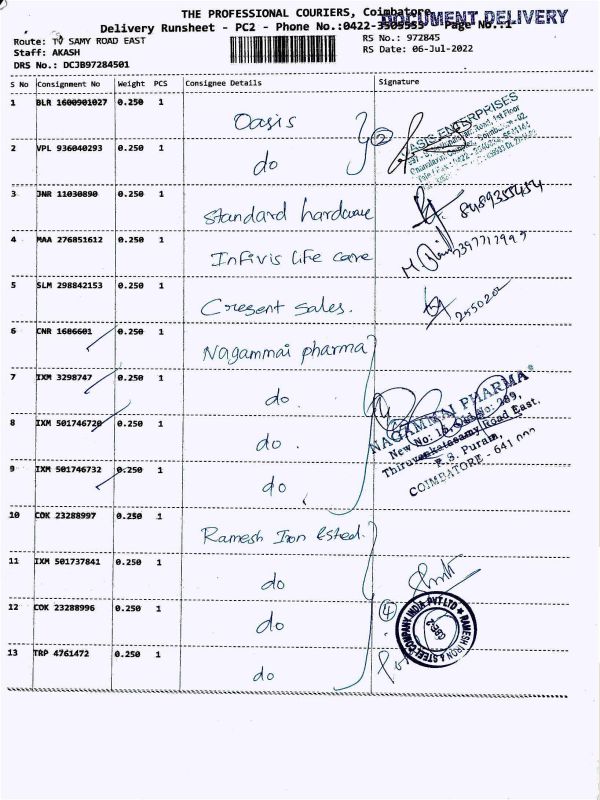 THE PROFESSIONAL COURIERS, Coimbatore
DOCUMENT DELIVERY
Delivery Runsheet - PC2 - Phone No.:0422-3505555 Page No.:1
Route: TV SAMY ROAD EAST
RS No.: 972845
Staff: AKASH
RS Date: 06-Jul-2022
DRS No.: DCJB97284501
S No Consignment No Weight PCS Consignee Details Signature
1 BLR 1600901027 0.250 1 Oasis
2 VPL 936040293 0.250 1 do
②
OASIS ENTERPRISES
3 JNR 11030890 0.250 1 Standard hardware 8489355454
4 MAA 276851612 0.250 1 Infivis life care
5 SLM 298842153 0.250 1 Cresent Sales.
6 CNR 1686601 0.250 1 Nagammai pharma
7 IXM 3298747 0.250 1 do.
8 IXM 501746720 0.250 1 do.
9 IXM 501746732 0.250 1 do
NAGAMMAI PHARMA
New No: 16, Old No: 289,
Thiruvenkatasamy Road East,
R.S. Puram,
COIMBATORE - 641 002
10 COK 23288997 0.250 1 Ramesh Iron
11 IXM 501737841 0.250 1 do
12 COK 23288996 0.250 1 do
13 TRP 4761472 0.250 1 do
④
RAMESH IRON & STEEL COMPANY INDIA PVT LTD